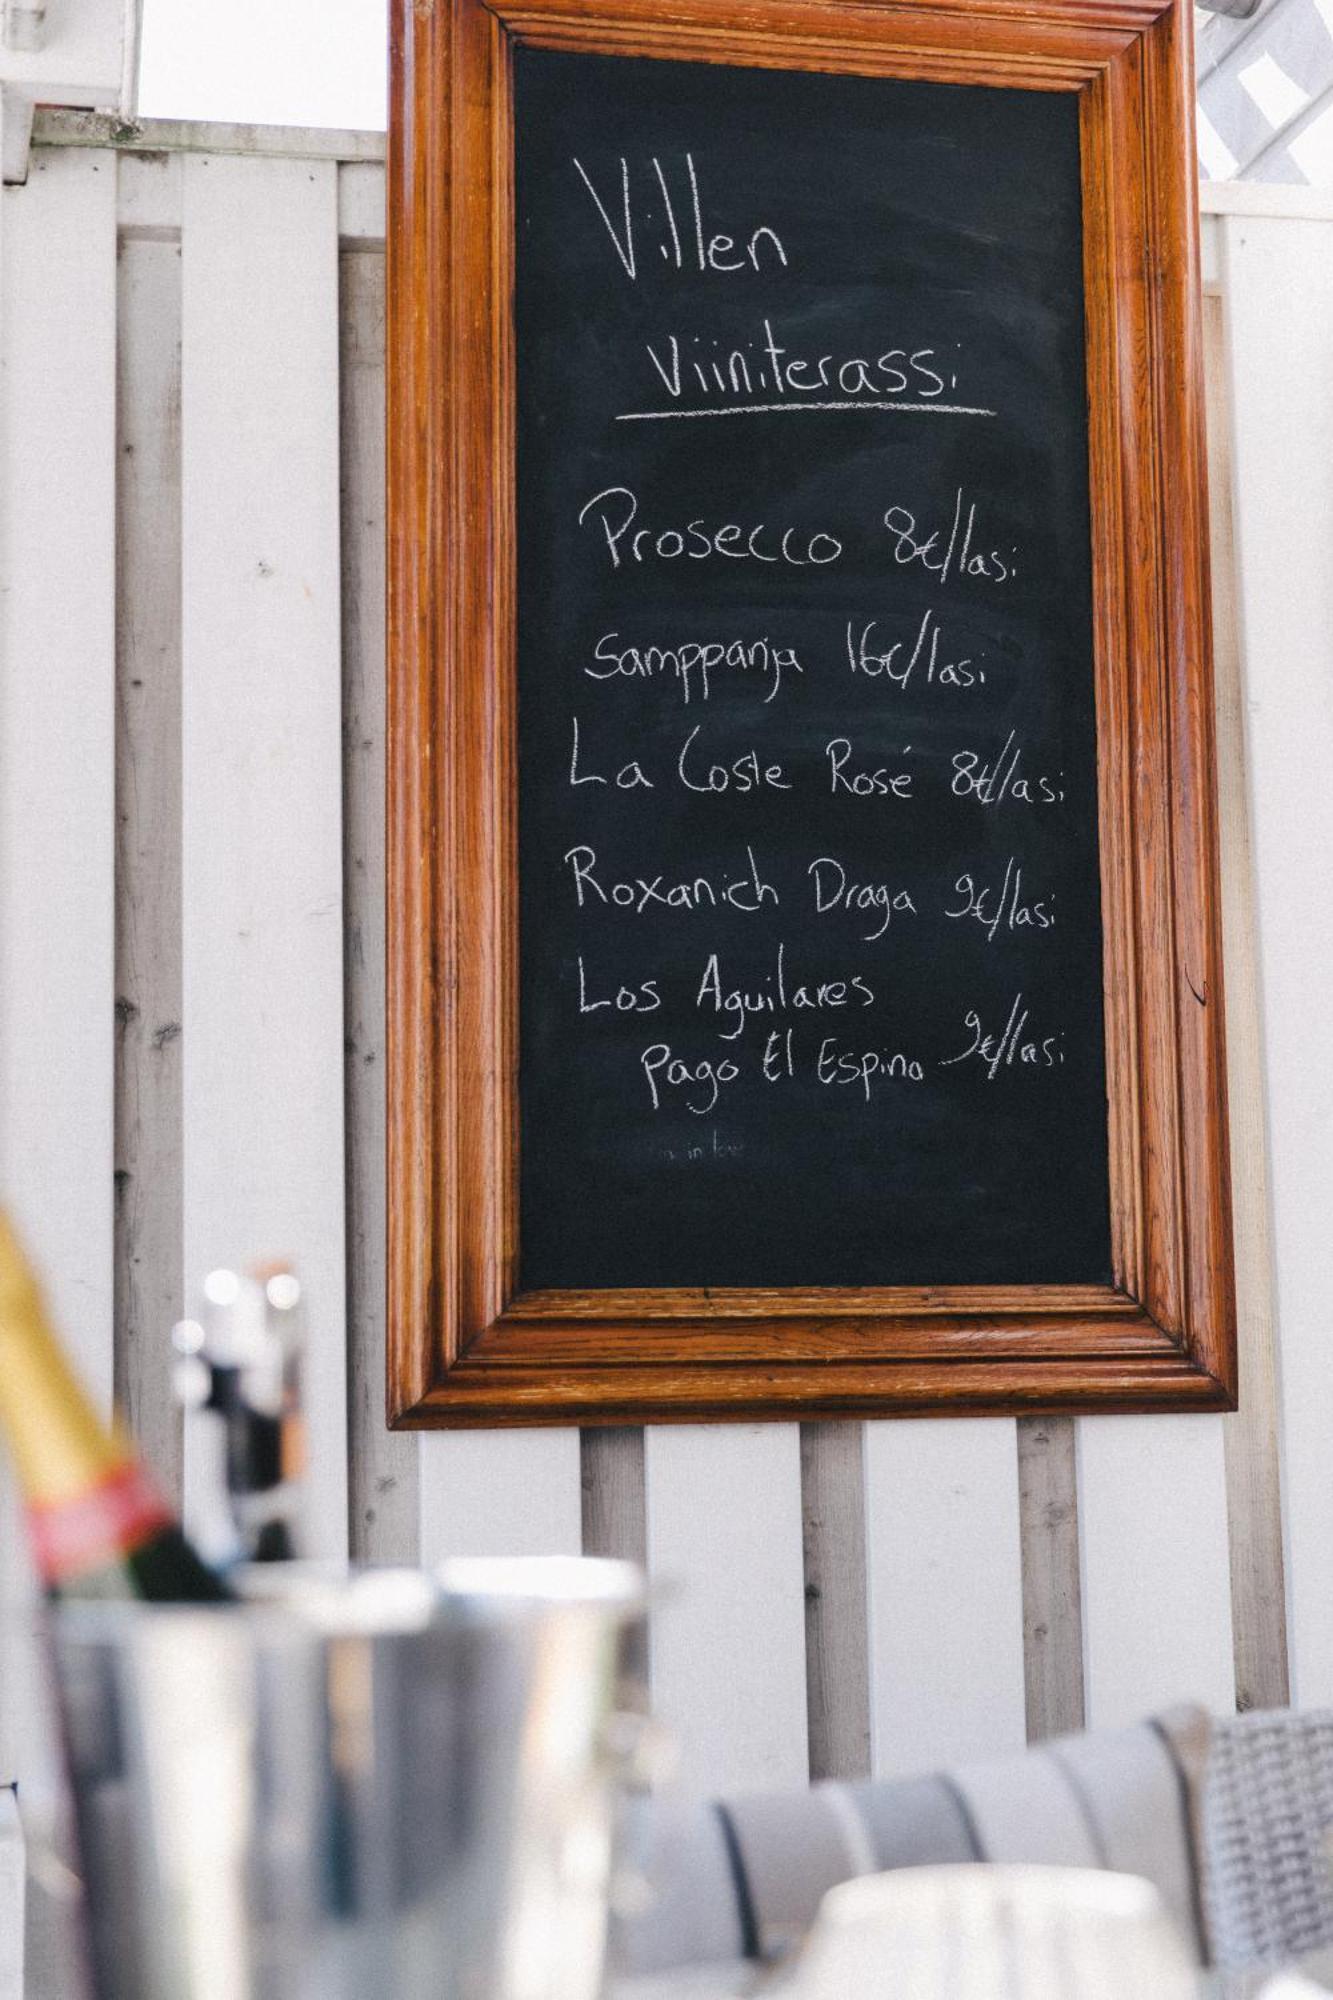 Villen
Viiniterassi
Prosecco 8€/lasi
Samppanja 16€/lasi
La Coste Rosé 8€/lasi
Roxanich Draga 9€/lasi
Los Aguilares
Pago El Espino 9€/lasi
in love